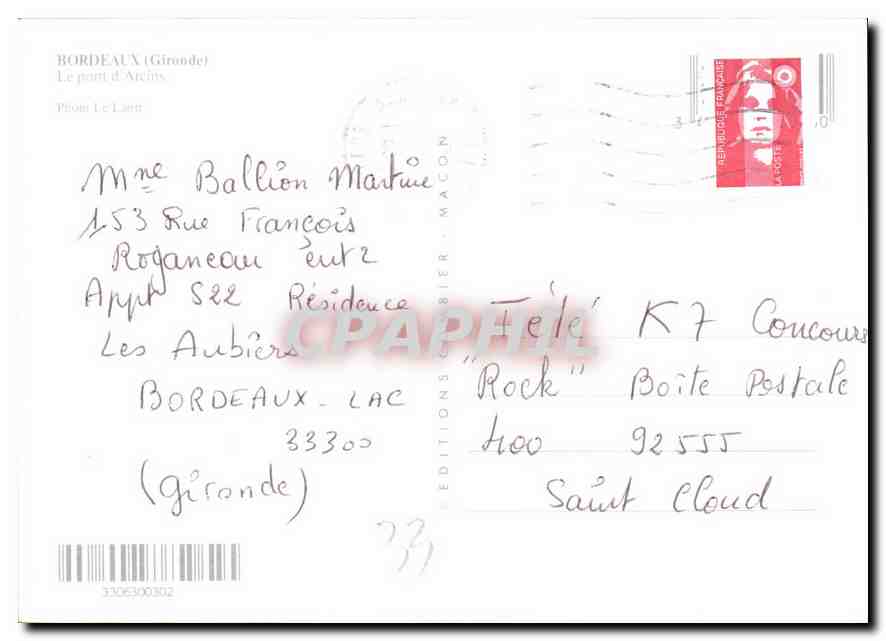 BORDEAUX (Gironde)
Le pont d'Arcins
REPUBLIQUE FRANÇAISE
LA POSTE
Mme Ballion Martine
153 Rue François
Roganeau ent 2
Appt 522 Résidence
Les Aubiers
BORDEAUX - LAC
33300
(Gironde)
CPAPHIL
EDITIONS BIER - MACON
"Télé" K7 Concours
"Rock" Boîte Postale
400 92555
Saint Cloud
33
3306300302